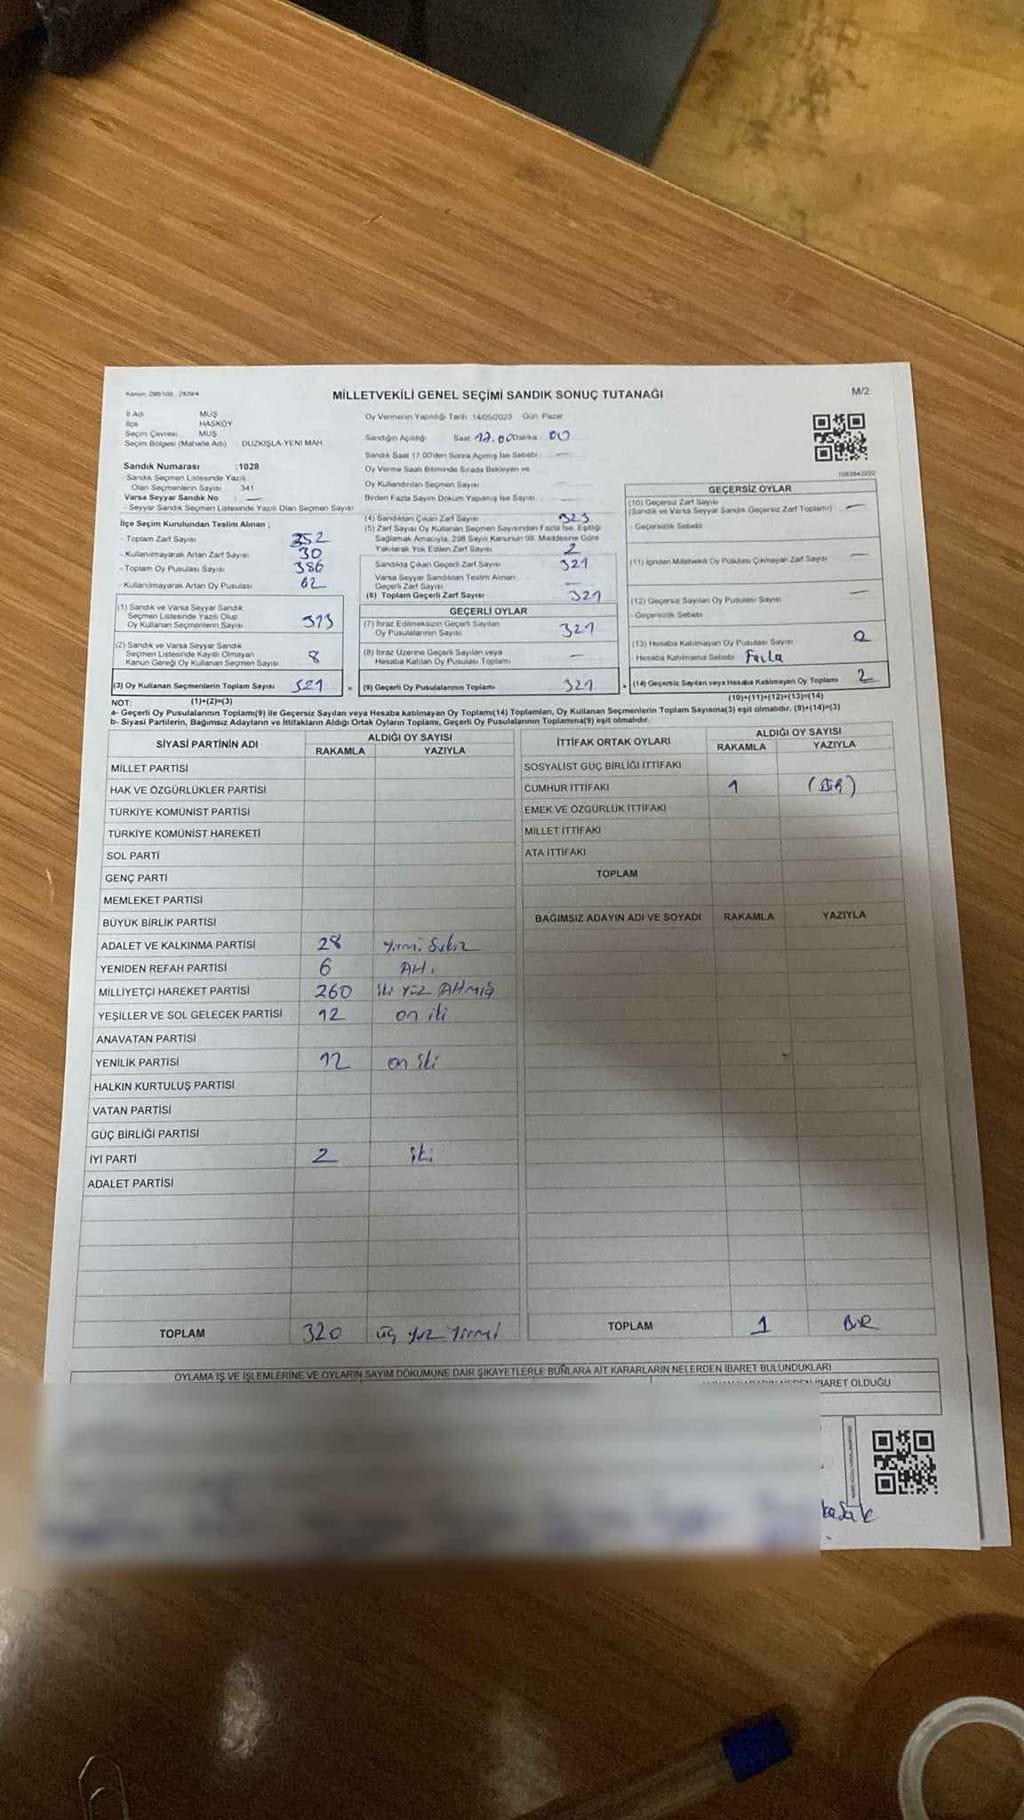 Kanun: 298/108 , 2839/4
MİLLETVEKİLİ GENEL SEÇİMİ SANDIK SONUÇ TUTANAĞI
M/2
İl Adı MUŞ
İlçe HASKÖY
Seçim Çevresi MUŞ
Seçim Bölgesi (Mahalle Adı) : DÜZKIŞLA-YENİ MAH.
Sandık Numarası :1028
- Sandık Seçmen Listesinde Yazılı
Olan Seçmenlerin Sayısı : 341
Varsa Seyyar Sandık No : —
- Seyyar Sandık Seçmen Listesinde Yazılı Olan Seçmen Sayısı
İlçe Seçim Kurulundan Teslim Alınan ;
- Toplam Zarf Sayısı 352
- Kullanılmayarak Artan Zarf Sayısı 30
- Toplam Oy Pusulası Sayısı 386
- Kullanılmayarak Artan Oy Pusulası 62
(1) Sandık ve Varsa Seyyar Sandık
Seçmen Listesinde Yazılı Olup
Oy Kullanan Seçmenlerin Sayısı 313
(2) Sandık ve Varsa Seyyar Sandık
Seçmen Listesinde Kayıtlı Olmayan
Kanun Gereği Oy Kullanan Seçmen Sayısı 8
(3) Oy Kullanan Seçmenlerin Toplam Sayısı 321
Oy Vermenin Yapıldığı Tarih :14/05/2023 Gün :Pazar
Sandığın Açıldığı Saat 17.00 Dakika : 00
Sandık Saat 17:00'den Sonra Açılmış İse Sebebi : —
Oy Verme Saati Bitiminde Sırada Bekleyen ve
Oy Kullandırılan Seçmen Sayısı : —
Birden Fazla Sayım Döküm Yapılmış İse Sayısı: —
(4) Sandıktan Çıkan Zarf Sayısı 323
(5) Zarf Sayısı Oy Kullanan Seçmen Sayısından Fazla İse, Eşitliği
Sağlamak Amacıyla, 298 Sayılı Kanunun 98. Maddesine Göre
Yakılarak Yok Edilen Zarf Sayısı 2
Sandıkta Çıkan Geçerli Zarf Sayısı 321
Varsa Seyyar Sandıktan Teslim Alınan
Geçerli Zarf Sayısı —
(6) Toplam Geçerli Zarf Sayısı 321
GEÇERLİ OYLAR
(7) İtiraz Edilmeksizin Geçerli Sayılan
Oy Pusulalarının Sayısı 321
(8) İtiraz Üzerine Geçerli Sayılan veya
Hesaba Katılan Oy Pusulası Toplamı —
= (9) Geçerli Oy Pusulalarının Toplamı 321
GEÇERSİZ OYLAR
(10) Geçersiz Zarf Sayısı
(Sandık ve Varsa Seyyar Sandık Geçersiz Zarf Toplamı) —
- Geçersizlik Sebebi
(11) İçinden Milletvekili Oy Pusulası Çıkmayan Zarf Sayısı —
(12) Geçersiz Sayılan Oy Pusulası Sayısı —
- Geçersizlik Sebebi
(13) Hesaba Katılmayan Oy Pusulası Sayısı 2
- Hesaba Katılmama Sebebi Fazla
+ (14) Geçersiz Sayılan veya Hesaba Katılmayan Oy Toplamı 2
NOT: (1)+(2)=(3) (10)+(11)+(12)+(13)=(14)
a- Geçerli Oy Pusulalarının Toplamı(9) ile Geçersiz Sayılan veya Hesaba katılmayan Oy Toplamı(14) Toplamları, Oy Kullanan Seçmenlerin Toplam Sayısına(3) eşit olmalıdır. (9)+(14)=(3)
b- Siyasi Partilerin, Bağımsız Adayların ve İttifakların Aldığı Ortak Oyların Toplamı, Geçerli Oy Pusulalarının Toplamına(9) eşit olmalıdır.
SİYASİ PARTİNİN ADI ALDIĞI OY SAYISI
RAKAMLA YAZIYLA
MİLLET PARTİSİ
HAK VE ÖZGÜRLÜKLER PARTİSİ
TÜRKİYE KOMÜNİST PARTİSİ
TÜRKİYE KOMÜNİST HAREKETİ
SOL PARTİ
GENÇ PARTİ
MEMLEKET PARTİSİ
BÜYÜK BİRLİK PARTİSİ
ADALET VE KALKINMA PARTİSİ 28 yirmi Sekiz
YENİDEN REFAH PARTİSİ 6 Altı
MİLLİYETÇİ HAREKET PARTİSİ 260 iki yüz Altmış
YEŞİLLER VE SOL GELECEK PARTİSİ 12 on iki
ANAVATAN PARTİSİ
YENİLİK PARTİSİ 12 on iki
HALKIN KURTULUŞ PARTİSİ
VATAN PARTİSİ
GÜÇ BİRLİĞİ PARTİSİ
İYİ PARTİ 2 iki
ADALET PARTİSİ
TOPLAM 320 üç yüz yirmi
İTTİFAK ORTAK OYLARI ALDIĞI OY SAYISI
RAKAMLA YAZIYLA
SOSYALİST GÜÇ BİRLİĞİ İTTİFAKI
CUMHUR İTTİFAKI 1 (BİR)
EMEK VE ÖZGÜRLÜK İTTİFAKI
MİLLET İTTİFAKI
ATA İTTİFAKI
TOPLAM
BAĞIMSIZ ADAYIN ADI VE SOYADI RAKAMLA YAZIYLA
TOPLAM 1 BİR
OYLAMA İŞ VE İŞLEMLERİNE VE OYLARIN SAYIM DÖKÜMÜNE DAİR ŞİKAYETLERLE BUNLARA AİT KARARLARIN NELERDEN İBARET BULUNDUKLARI
İBARET OLDUĞU